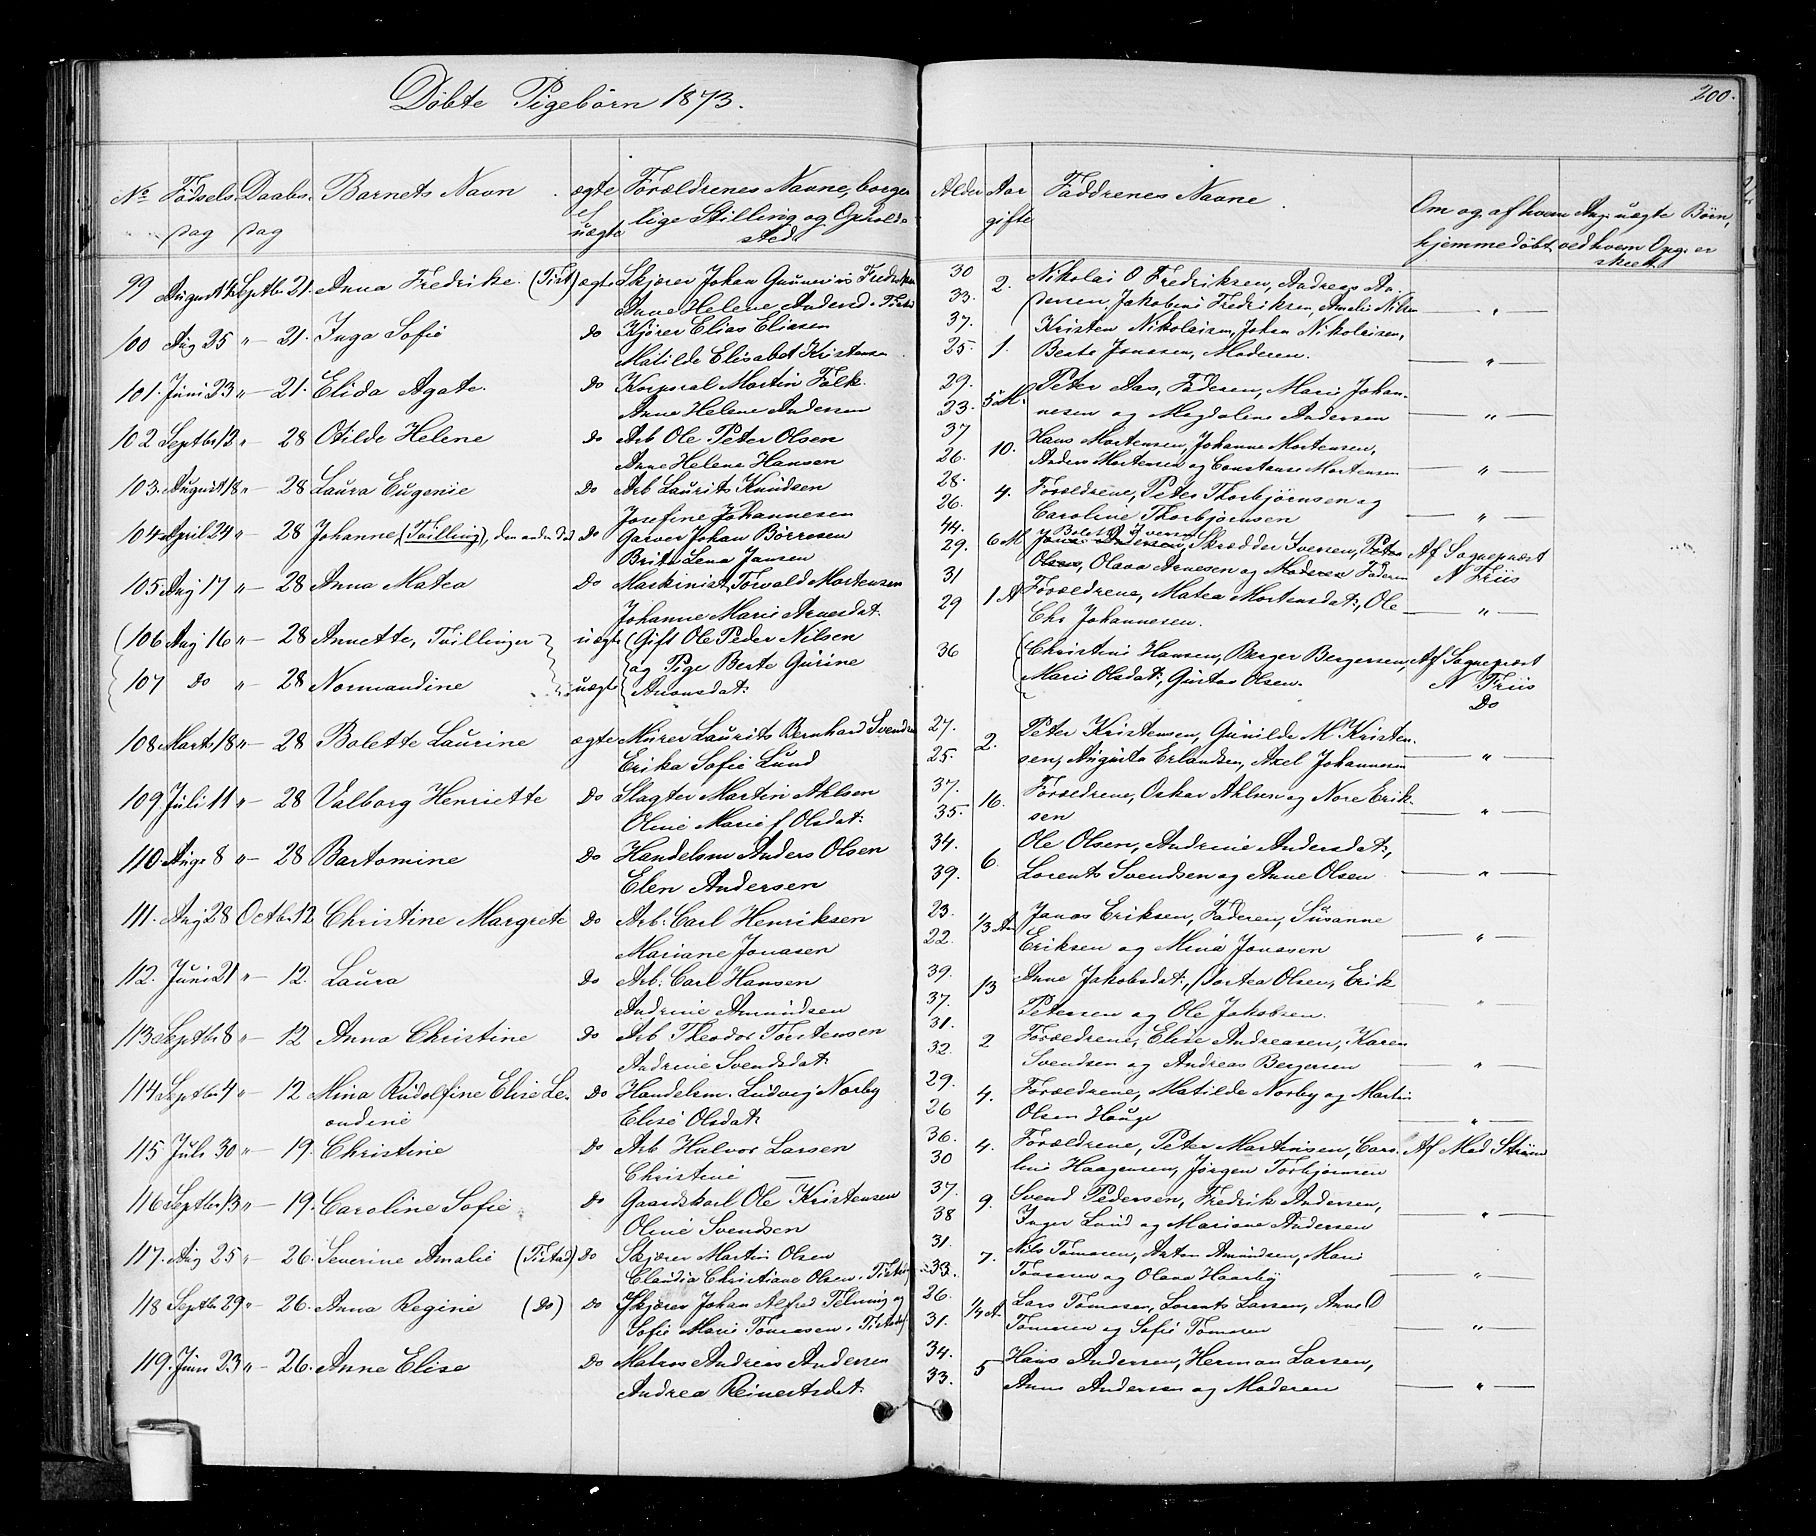 Döbte Pigebörn 1873.
200.
No Födsels dag Daabs dag Barnets Navn ægte el uægte Forældrenes Navne, borgerlige Stilling og Opholdssted
Alder Aar gifte Faddrenes Navne Om og af hvem hjemmedöbt Ang. uægte Børn, ved hvem Opg. er skeet
99 August Septbr 21. Anna Fredrike (Tist) ægte Skjører Johan Gunerius Fredriksen 30 2. Nikolai O Fredriksen, Andreas An-
Anne Helene Anders d. Tistad 33. dersen, Jakobine Fredriksen, Amalie Nilsen — " —
100 Aug 25 " 21. Inga Sofie do Kjører Elias Eliasen 37. 1. Kristen Nikolaisen, Johan Nikolaisen,
Matilde Elisabet Kristensen 25. Berte Jonassen, Moderen. — " —
101. Juni 23 " 21. Elida Agate. do Korporal Martin Falk. 29. 5 M. Peter Aas, Faderen, Marie Johan-
Anne Helene Andersen 23. nesen og Magdaline Andersen — " —
102 Septbr 12 " 28 Otilde Helene do Arb Ole Peter Olsen 37 10. Hans Mortensen, Johanne Mortensen,
Anne Helene Hansen 26. Anders Mortensen og Constanse Mortensen — " —
103. August 18 " 28 Laura Eugenie do Arb Laurits Knudsen 28. 4. Forældrene, Peter Thorbjørnsen og
Josefine Johannesen 26. Caroline Thorbjørnsen — " —
104 April 24 " 28 Johanne (Tvilling), den anden død do Garver Johan Börresen 44. 6 M Bolette Iversen, Skrædder Iversen, Peter Af Sogneprest
Brite Lena Jansen 29. Olsen, Olava Arnesen og Moderen Faderen N Friis
105 Aug 17 " 28 Anna Matea do Maskinist Torvald Mortensen 31 1 A Forældrene, Matea Mortensdat:, Ole
Johanne Marie Arnesdat: 29 Chr Johannesen. — " —
106 Aug 16 " 28 Annette, Tvillinger uægte Gift Ole Peder Nilsen 36 Christine Hansen, Berger Bergersen, Af Sogneprest
107 do " 28 Normandine uægte og Pige Berte Gurine Marie Olsdat:, Gustav Olsen. N Friis
Amonsdat: Do
108 Marts 18 " 28 Bolette Laurine ægte Murer Laurits Bernhard Svendsen 27. 2. Peter Kristensen, Gunilde M Kristen-
Erika Sofie Lund 25. sen, Augusta Erlandsen, Axel Johannesen — " —
109 Juli 11 " 28 Valborg Henriette do Slagter Martin Ahlsen 37. 16. Forældrene, Oskar Ahlsen og Nore Erik-
Oline Marie f Olsdat: 35. sen — " —
110 Aug 8 " 28 Bartomine do Handelsm Anders Olsen 34. 6. Ole Olsen, Andrine Andersdat:,
Elen Andersen 39. Lorents Svendsen og Anne Olsen — " —
111. Aug 28 Octbr 12 Christine Margrete do Arb: Carl Henriksen 23. 1/3 Aar Jonas Eriksen, Faderen, Susanne
Mariane Jonasen 22. Eriksen og Mina Jonassen — " —
112. Juni 21 " 12. Laura do Arb: Carl Hansen 39. 13 Anne Jakobsdat:, Dortea Olsen, Erik
Andrine Amundsen 37. Petersen og Ole Jakobsen. — " —
113 Septbr 8 " 12 Anna Christine do Arb Theodor Torstensen 31. 2 Forældrene, Elise Andreasen, Karen
Andrine Svendsdat: 32. Svendsen og Andreas Bergersen — " —
114 Septbr 4 " 12 Mina Rudolfine Elise Le- do Handelsm. Ludvig Norby 29. 4. Forældrene, Matilde Norby og Martin
ondine Elise Olsdat: 26 Olsen Hauge — " —
115 Juli 30 " 19. Christine do Arb Halvor Larsen 36. 4. Forældrene, Peter Martinsen, Caro- Af Mad Ström
Christine — 30 line Haagensen, Jörgen Torbjörnsen
116 Septbr 13 " 19. Caroline Sofie do Gaardskarl Ole Kristensen 37. 9. Svend Pedersen, Fredrik Andersen,
Oline Svendsen 38 Inger Lund og Mariane Andersen — " —
117. Aug 25 " 26. Severine Amalie (Tistad) do Skjører Martin Olsen 31. 7. Nils Tomasen, Anton Amundsen, Marie
Claudia Christiane Olsen. Tistad 33. Tomasen og Olava Haarby — " —
118 Septbr 29 " 26. Anna Regine (Do) do Skjører Johan Alfred Telning og 26. 1/4 A Lars Tomasen, Lorents Larsen, Anne O
Sofie Marie Tomasen. Tistad 31. Tomasen og Sofie Tomasen — " —
119. Juni 23 " 26. Anne Elise do Matros Andreas Andersen 34. 5 Hans Andersen, Herman Larsen,
Andrea Reinertsdat: 33. Anne Andersen og Moderen — " —